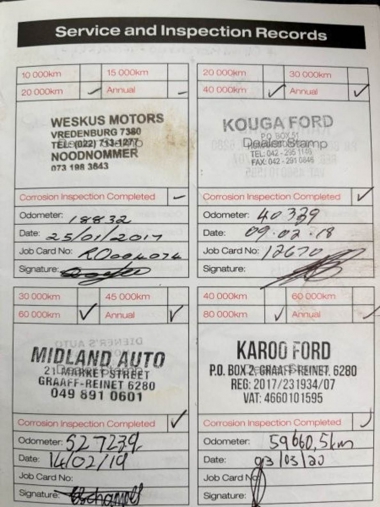 Service and Inspection Records
10 000km 15 000km
20 000km Annual
WESKUS MOTORS
VREDENBURG 7380
TEL: (022) 713-1277
NOODNOMMER
073 198 3643
Corrosion Inspection Completed
Odometer: 18832
Date: 25/01/2017
Job Card No: R0004074
Signature:
20 000km 30 000km
40 000km Annual
KOUGA FORD
P.O BOX 51
Dealer Stamp
TEL: 042 - 295
FAX: 042 - 291 0646
Corrosion Inspection Completed
Odometer: 40329
Date: 09.02.18
Job Card No: 12670
Signature:
30 000km 45 000km
60 000km Annual
MIDLAND AUTO
21 MARKET STREET
GRAAFF-REINET 6280
049 891 0601
Corrosion Inspection Completed
Odometer: 527239
Date: 14/02/19
Job Card No:
Signature:
40 000km 60 000km
80 000km Annual
KAROO FORD
P.O. BOX 2, GRAAFF-REINET, 6280
REG: 2017/231934/07
VAT: 4660101595
Corrosion Inspection Completed
Odometer: 59660,5km
Date: 03/03/20
Job Card No
Signature: